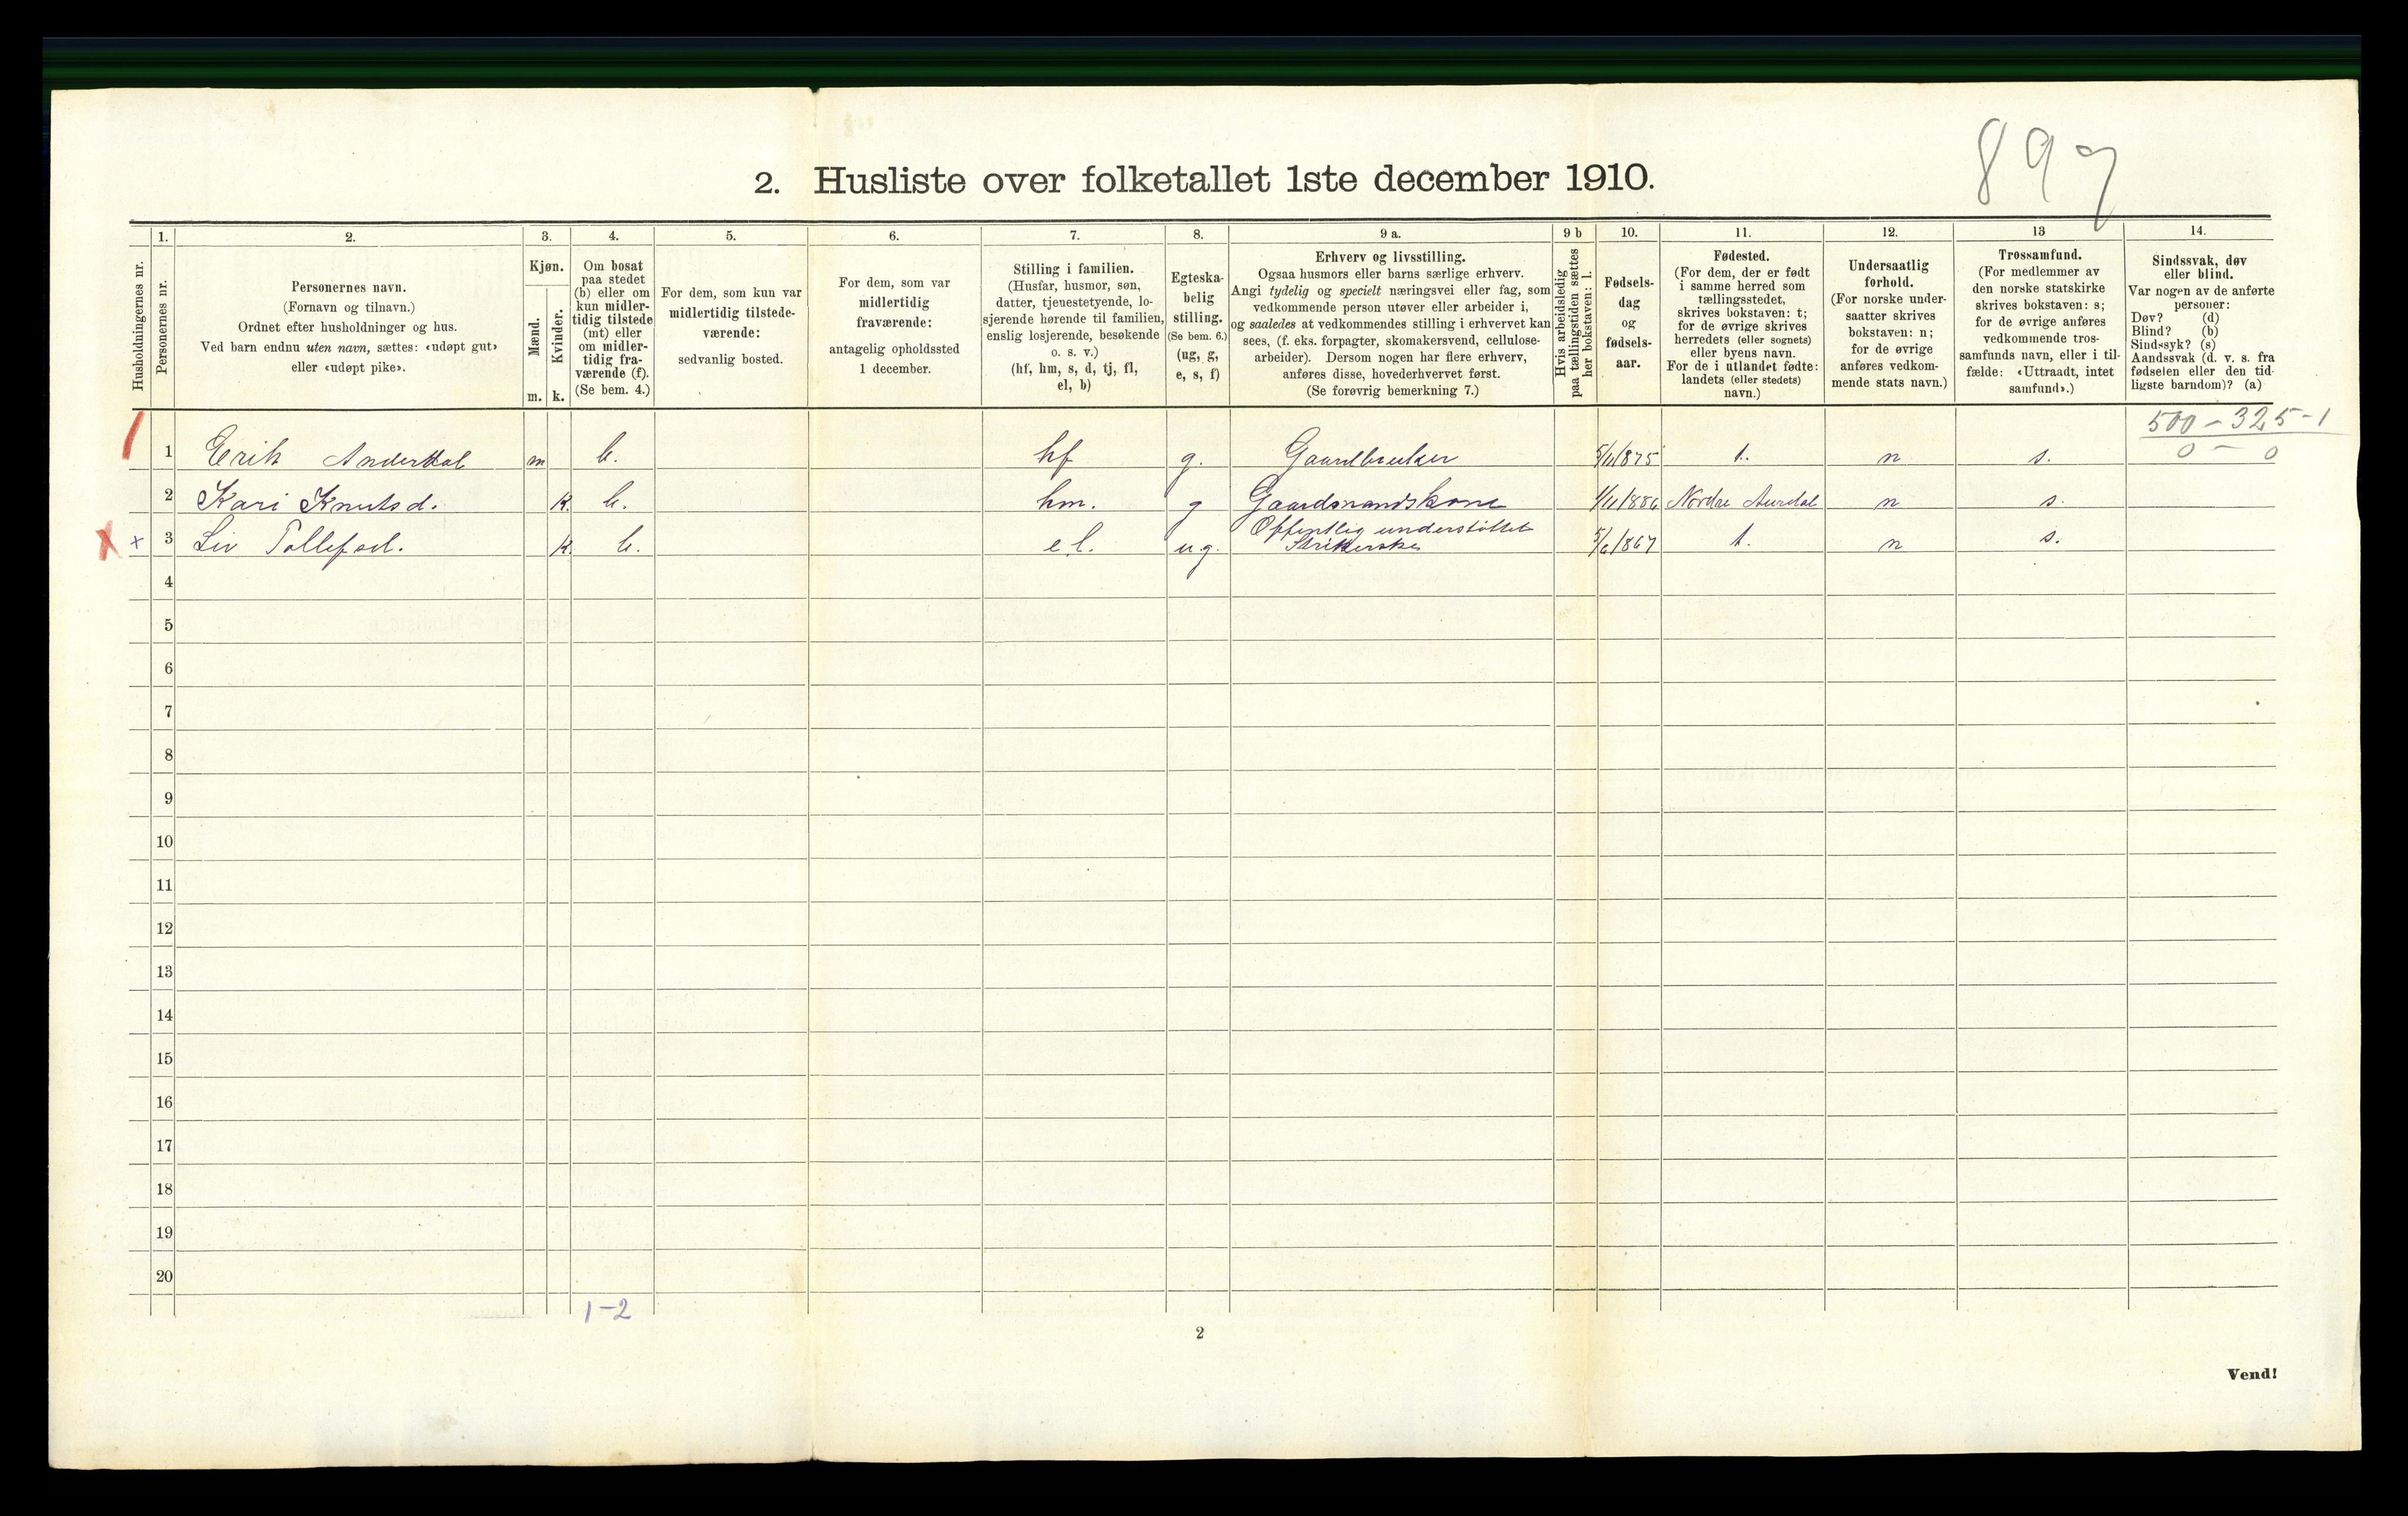 897
2. Husliste over folketallet 1ste december 1910.
Husholdningernes nr.
1.
Personernes nr.
2.
Personernes navn.
(Fornavn og tilnavn.)
Ordnet efter husholdninger og hus.
Ved barn endnu uten navn, sættes: «udøpt gut»
eller «udøpt pike».
3.
Kjøn.
Mænd.
Kvinder.
m. k.
4.
Om bosat
paa stedet
(b) eller om
kun midler-
tidig tilstede
(mt) eller
om midler-
tidig fra-
værende (f).
(Se bem. 4.)
5.
For dem, som kun var
midlertidig tilstede-
værende:
sedvanlig bosted.
6.
For dem, som var
midlertidig
fraværende:
antagelig opholdssted
1 december.
7.
Stilling i familien.
(Husfar, husmor, søn,
datter, tjenestetyende, lo-
sjerende hørende til familien,
enslig losjerende, besøkende
o. s. v.)
(hf, hm, s, d, tj, fl,
el, b)
8.
Egteska-
belig
stilling.
(Se bem. 6.)
(ug, g,
e, s, f)
9 a.
Erhverv og livsstilling.
Ogsaa husmors eller barns særlige erhverv.
Angi tydelig og specielt næringsvei eller fag, som
vedkommende person utøver eller arbeider i,
og saaledes at vedkommendes stilling i erhvervet kan
sees, (f. eks. forpagter, skomakersvend, cellulose-
arbeider). Dersom nogen har flere erhverv,
anføres disse, hovederhvervet først.
(Se forøvrig bemerkning 7.)
9 b
Hvis arbeidsledig
paa tællingstiden sættes
her bokstaven: l.
10.
Fødsels-
dag
og
fødsels-
aar.
11.
Fødested.
(For dem, der er født
i samme herred som
tællingsstedet,
skrives bokstaven: t;
for de øvrige skrives
herredets (eller sognets)
eller byens navn.
For de i utlandet fødte:
landets (eller stedets)
navn.)
12.
Undersaatlig
forhold.
(For norske under-
saatter skrives
bokstaven: n;
for de øvrige
anføres vedkom-
mende stats navn.)
13
Trossamfund.
(For medlemmer av
den norske statskirke
skrives bokstaven: s;
for de øvrige anføres
vedkommende tros-
samfunds navn, eller i til-
fælde: «Uttraadt, intet
samfund».)
14.
Sindssvak, døv
eller blind.
Var nogen av de anførte
personer:
Døv? (d)
Blind? (b)
Sindssyk? (s)
Aandssvak (d. v. s. fra
fødselen eller den tid-
ligste barndom)? (a)
500 - 325 - 1
1 Erik m b. hf g. Gaardbruker 5/11 1875 t. n s. 0 - 0
2 Kari Knutsd. k. b. hm. g Gaardmandskone 1/11 1886 Nordre Aurdal n s.
Offentlig understøttet
x + 3 Liv Tollefsd. k. b. el. ug. Strikkerske 5/6 1867 t. n s.
4
5
6
7
8
9
10
11
12
13
14
15
16
17
18
19
20
1-2
2
Vend!